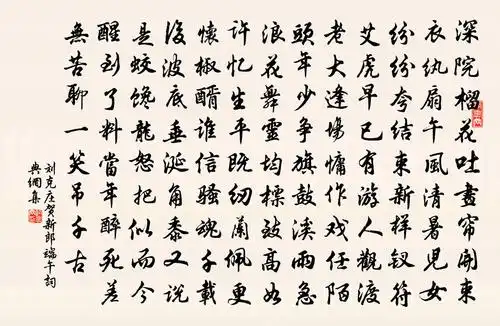 深院榴花吐畫帘開束
衣纨扇午風清暑兒女
纷纷夸结束新样钗符
艾虎早已有游人觀渡
老大逢場慵作戏任陌
頭年少争旗鼓溪雨急
浪花舞靈均標致高如
許忆生平既纫蘭佩更
懷椒醑誰信骚魂千載
後波底垂涎角黍又説
是蛟馋龍怒把似而今
醒到了料當年醉死差
無苦聊一笑吊千古
刘克庄賀新郎端午詞
典綱集